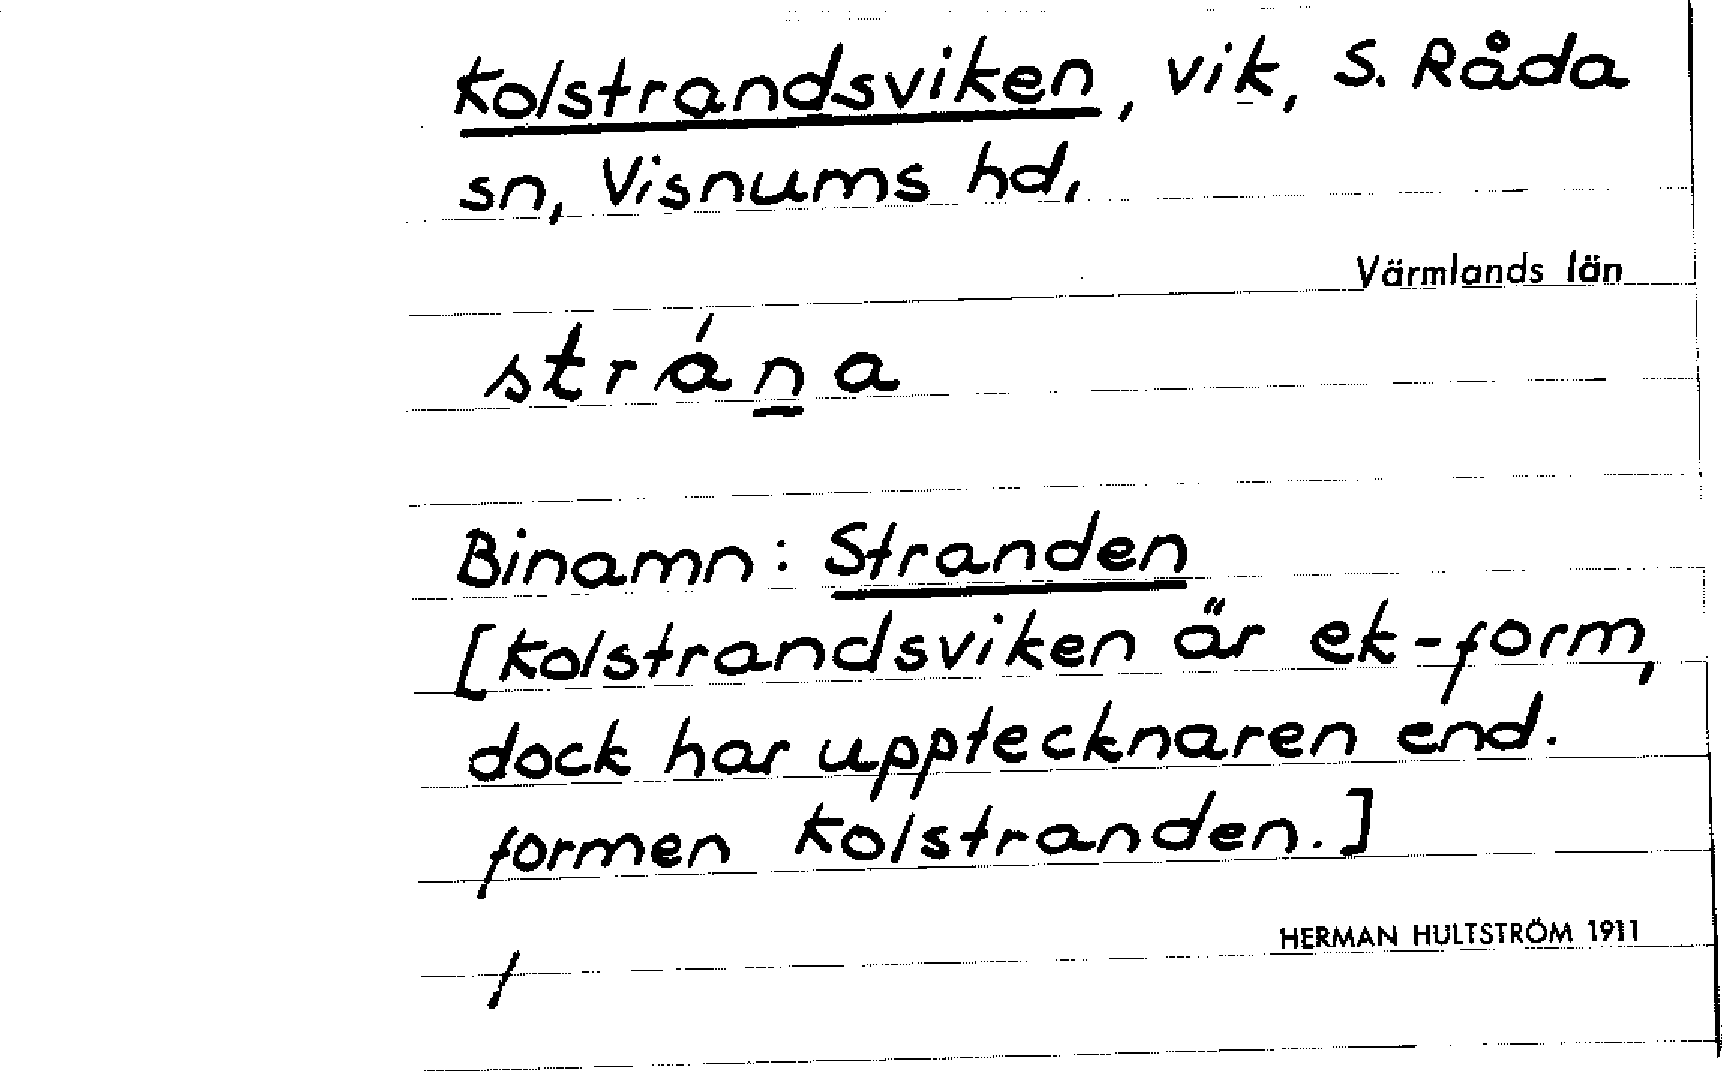 Kolstrandsviken, vik, S. Råda
sn, Visnums hd,
Värmlands län
strán̲a
Binamn: Stranden
[Kolstrandsviken är ek-form,
dock har upptecknaren end.
formen Kolstranden.]
HERMAN HULTSTRÖM 1911
/